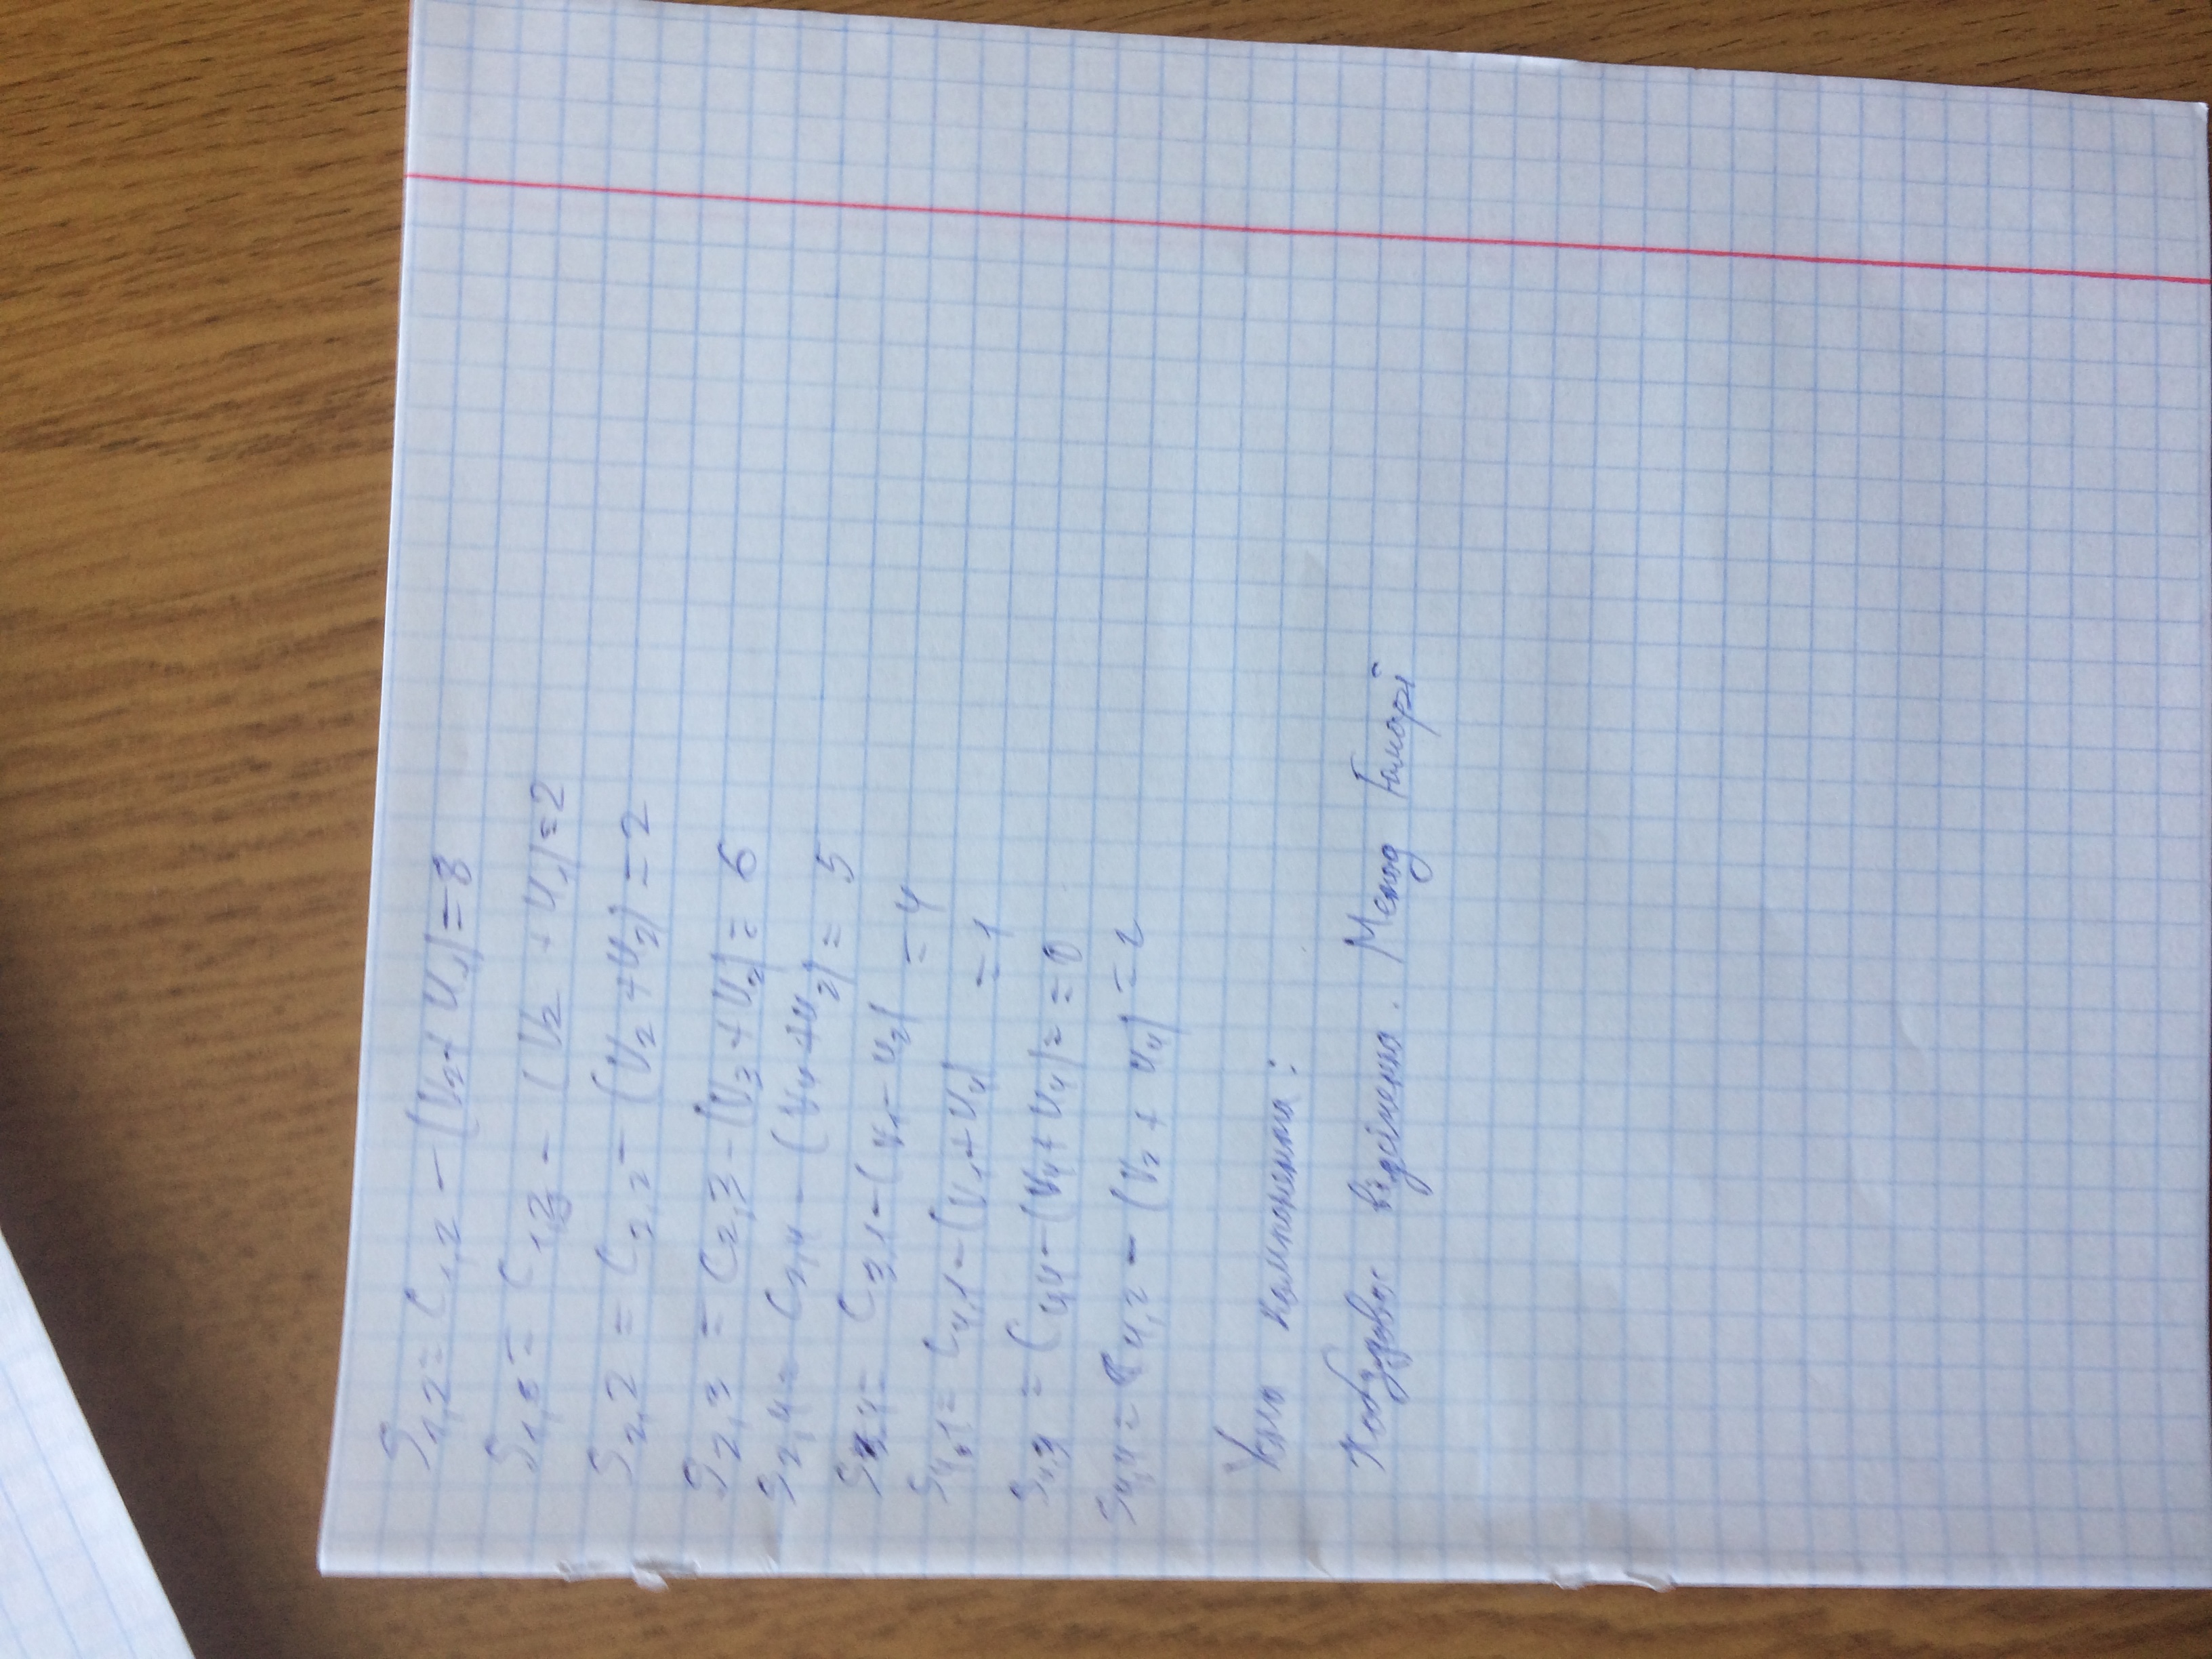 S1,2 = C1,2 - (V2 + U1) = 8
S1,3 = C1,3 - (V2 + U1) = 2
S2,2 = C2,2 - (V2 + U2) = 2
S2,3 = C2,3 - (V3 + U2) = 6
S2,4 = C2,4 - (V4 + U2) = 5
= C3,1 - (V1 - U2) = 4
S4,1 = C4,1 - (V1 + U4) = 1
= C4,4 - (V4 + U4) = = 0
S4,4 = C4,2 - (V2 + U4) = 2
компонента:
Побудова відсічення. Метод Гоморі